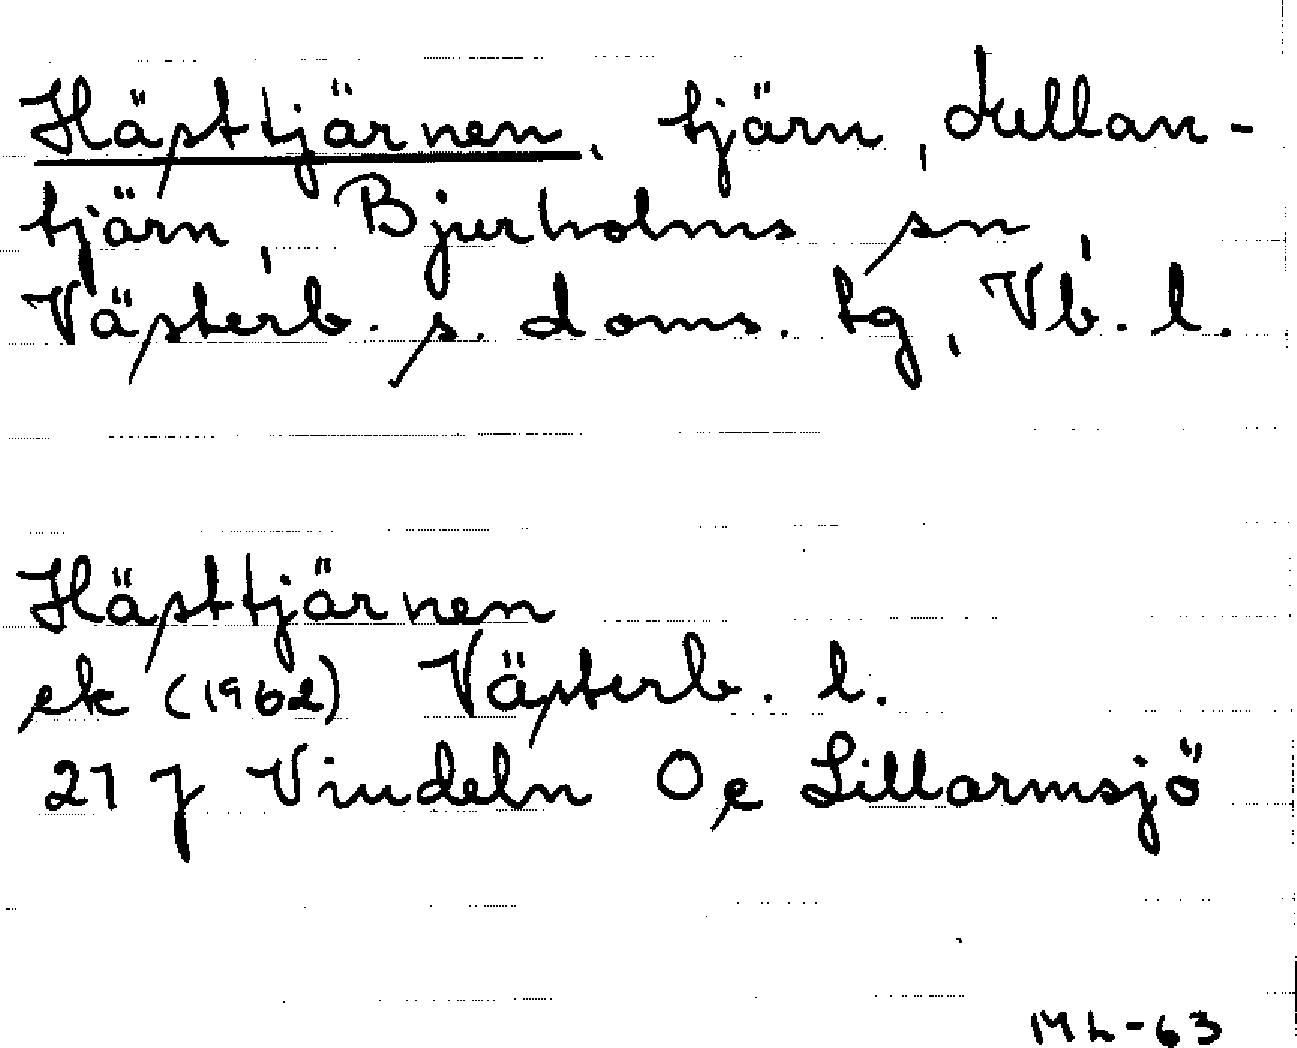 Hästtjärnen, tjärn, Lullan-
tjärn, Bjurholms sn,
Västerb. s. doms. tg, Vb. l.
Hästtjärnen
ek (1962) Västerb. l.
21 J Vindeln Öe Lillarmsjö
ML-63